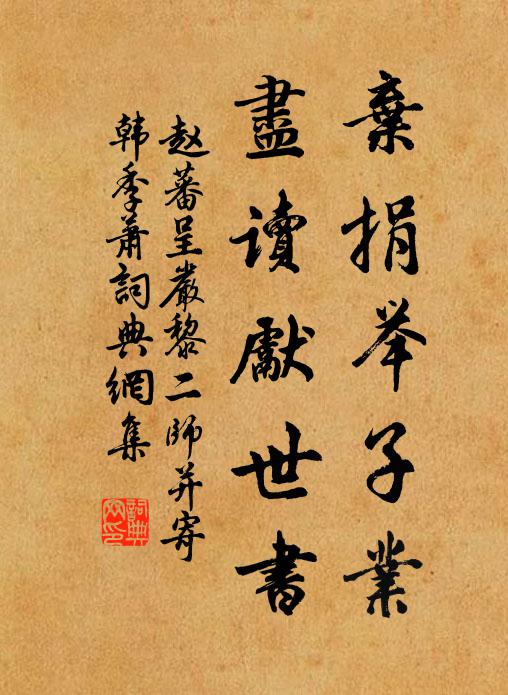 棄捐举子業
盡讀獻世書
赵蕃呈嚴黎二師并寄
韩季蕭詞典網集
詞典网印